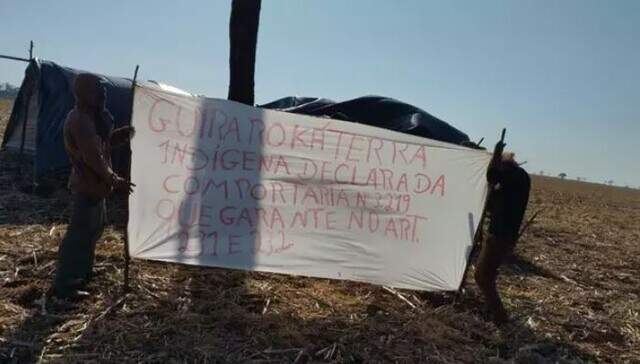 GUIRAROKÁ TERRA
INDÍGENA DECLARADA
COM PORTARIA Nº 3.219
QUE GARANTE NO ART.
231 E 232